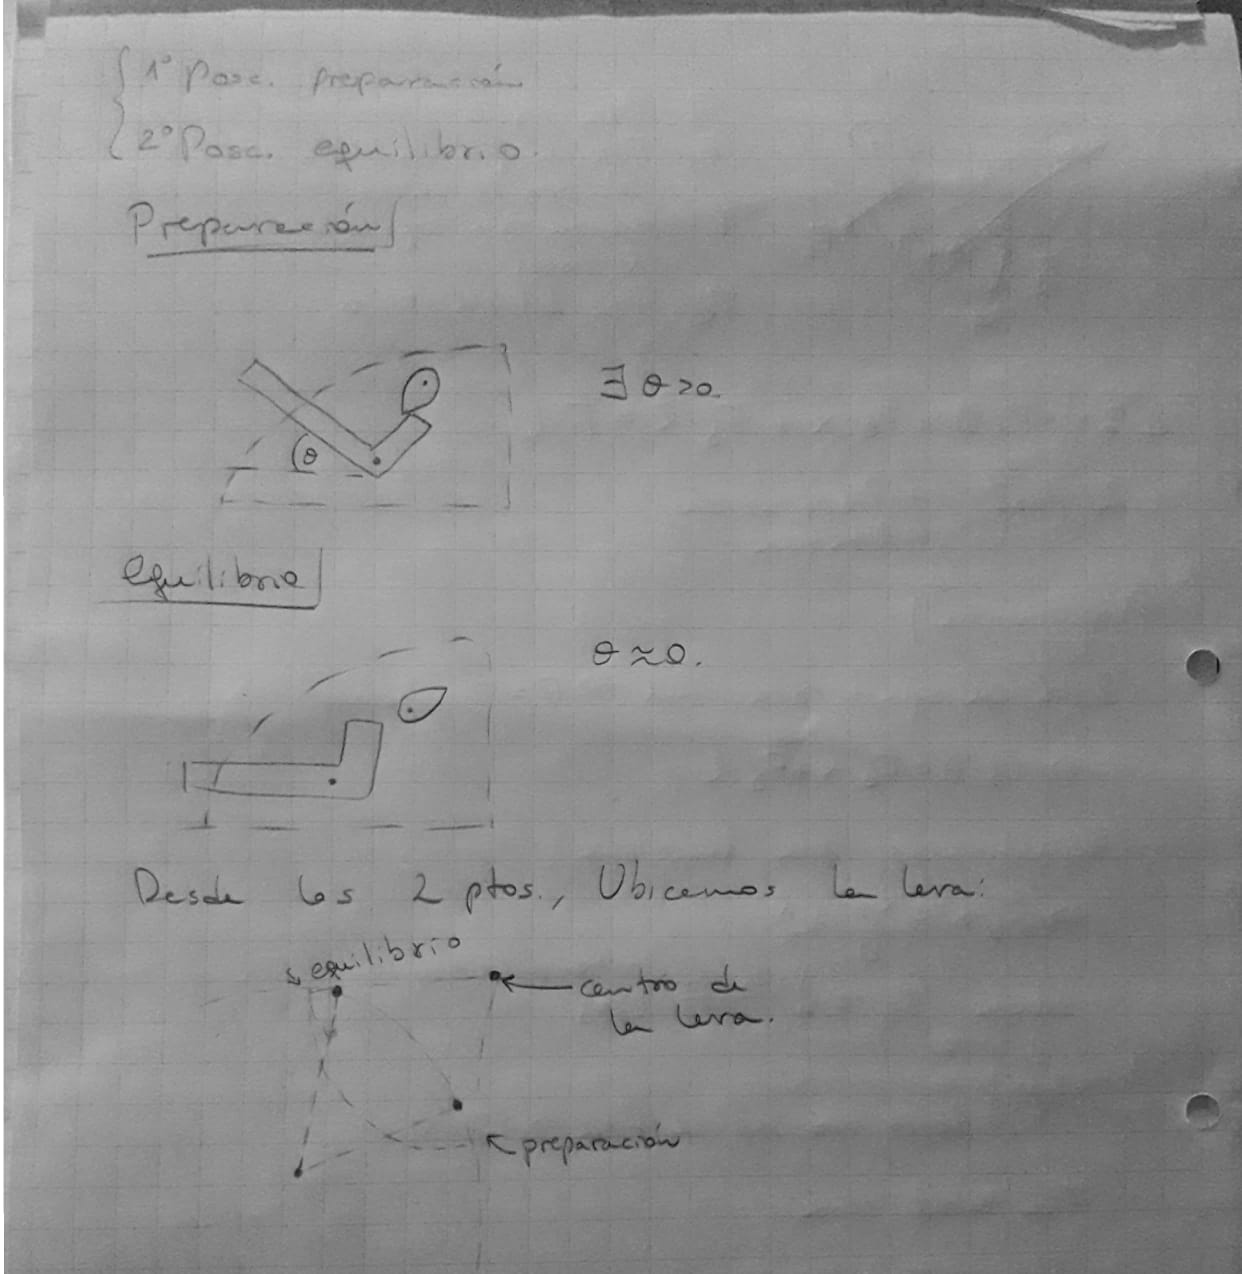 1º Posc. preparación
2º Posc. equilibrio.
Preparación
∃ θ>0.
θ
equilibrio
θ≈0.
Desde los 2 ptos., Ubicamos la leva:
equilibrio
centro de
la leva.
preparación